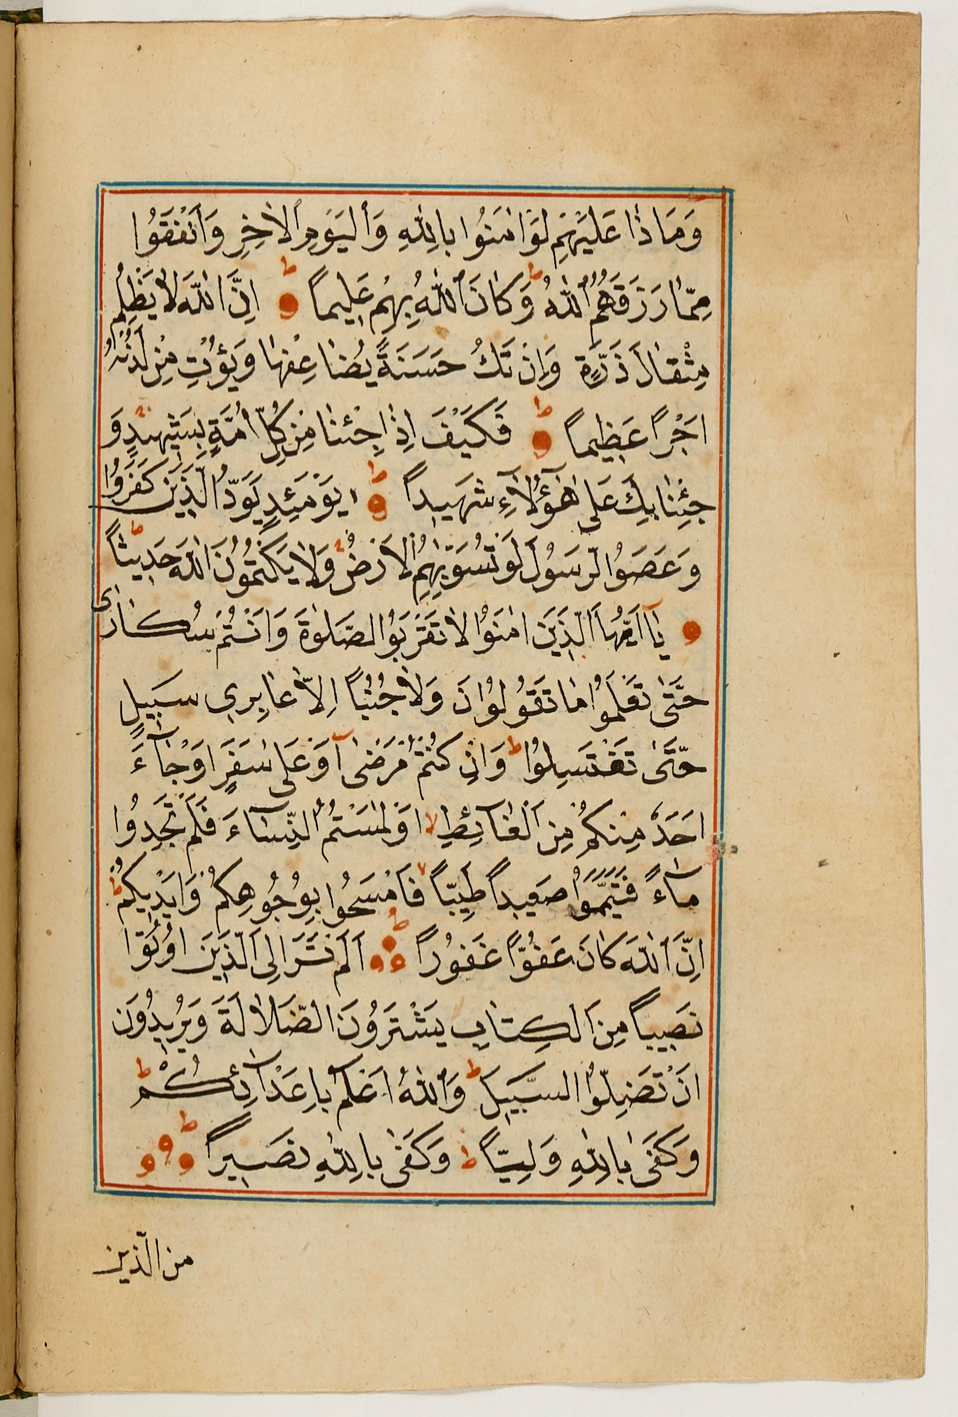 وَمَاذَا عَلَيْهِمْ لَوْ اٰمَنُوا بِاللّٰهِ وَالْيَوْمِ الْاٰخِرِ وَاَنْفَقُوا
مِمَّا رَزَقَهُمُ اللّٰهُ ط وَكَانَ اللّٰهُ بِهِمْ عَلِيماً ط اِنَّ اللّٰهَ لَا يَظْلِمُ
مِثْقَالَ ذَرَّةٍ وَاِنْ تَكُ حَسَنَةً يُضَاعِفْهَا وَيُؤْتِ مِنْ لَدُنْهُ
اَجْراً عَظِيماً ط فَكَيْفَ اِذَا جِئْنَا مِنْ كُلِّ اُمَّةٍ بِشَهِيدٍ وَ
جِئْنَا بِكَ عَلٰى هٰؤُلَاءِ شَهِيداً ط يَوْمَئِذٍ يَوَدُّ الَّذِينَ كَفَرُوا
وَعَصَوُا الرَّسُولَ لَوْ تُسَوّٰى بِهِمُ الْاَرْضُ وَلَا يَكْتُمُونَ اللّٰهَ حَدِيثاً ط
يَا اَيُّهَا الَّذِينَ اٰمَنُوا لَا تَقْرَبُوا الصَّلٰوةَ وَاَنْتُمْ سُكَارٰى
حَتّٰى تَعْلَمُوا مَا تَقُولُونَ وَلَا جُنُباً اِلَّا عَابِرِي سَبِيلٍ
حَتّٰى تَغْتَسِلُوا ط وَاِنْ كُنْتُمْ مَرْضٰى اَوْ عَلٰى سَفَرٍ اَوْ جَاءَ
اَحَدٌ مِنْكُمْ مِنَ الْغَائِطِ اَوْ لٰمَسْتُمُ النِّسَاءَ فَلَمْ تَجِدُوا
مَاءً فَتَيَمَّمُوا صَعِيداً طَيِّباً فَامْسَحُوا بِوُجُوهِكُمْ وَاَيْدِيكُمْ ط
اِنَّ اللّٰهَ كَانَ عَفُوّاً غَفُوراً ط اَلَمْ تَرَ اِلَى الَّذِينَ اُوتُوا
نَصِيباً مِنَ الْكِتَابِ يَشْتَرُونَ الضَّلَالَةَ وَيُرِيدُونَ
اَنْ تَضِلُّوا السَّبِيلَ ط وَاللّٰهُ اَعْلَمُ بِاَعْدَائِكُمْ ط
وَكَفٰى بِاللّٰهِ وَلِيّاً ط وَكَفٰى بِاللّٰهِ نَصِيراً ط
من الّذين